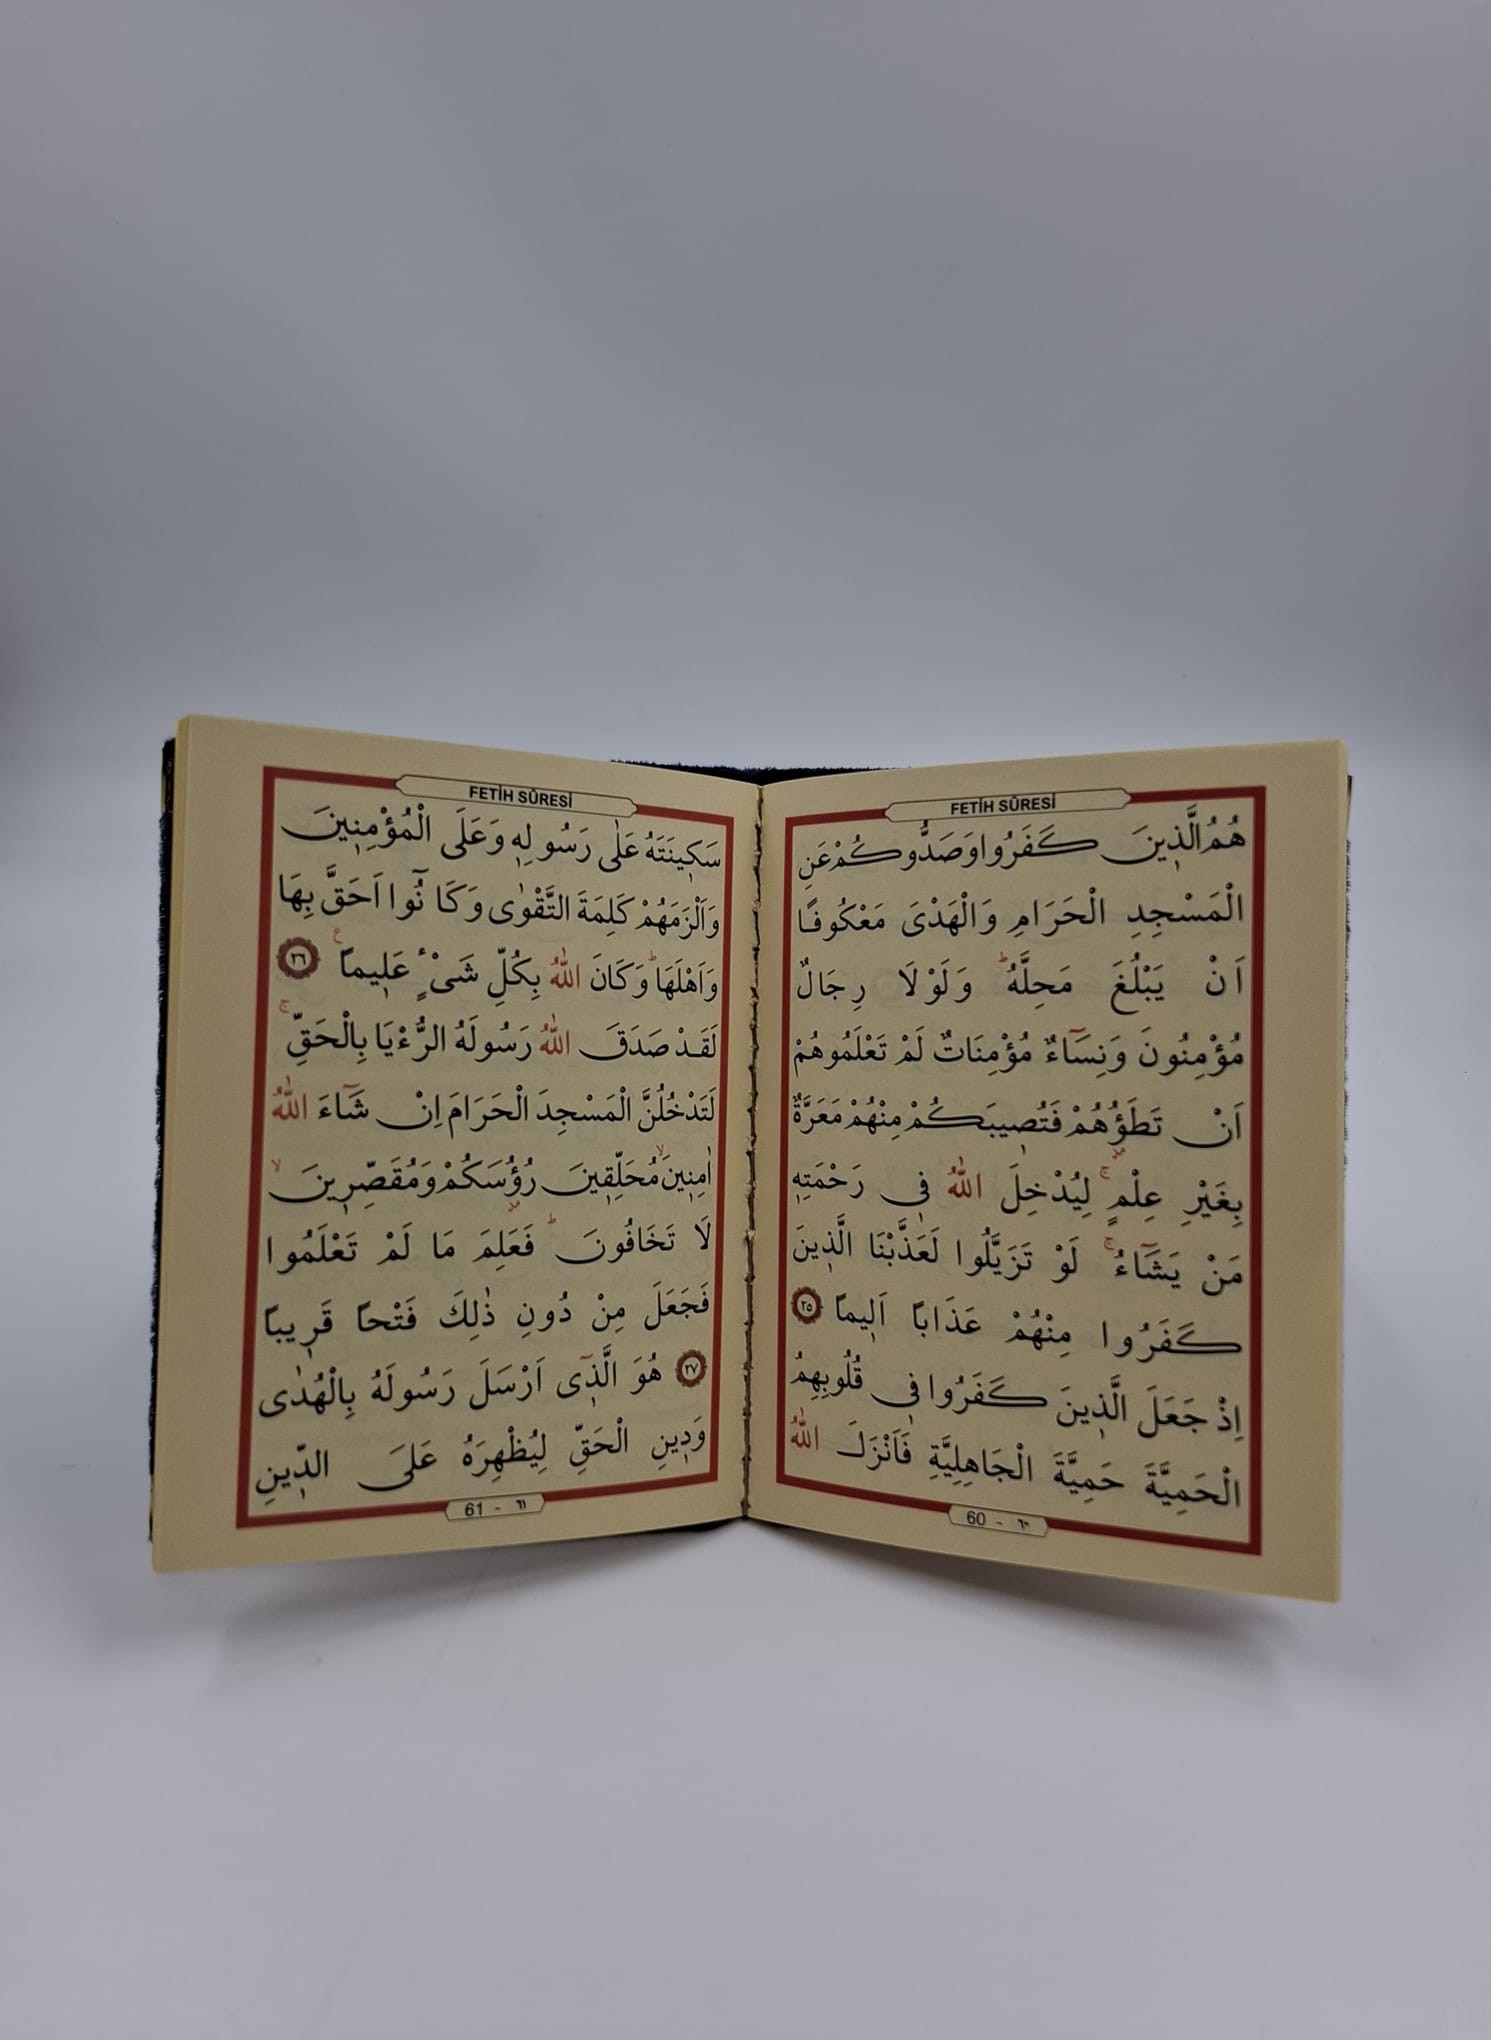 FETİH SÛRESİ
هُمُ الَّذ۪ينَ كَفَرُوا وَصَدُّوكُمْ عَنِ
الْمَسْجِدِ الْحَرَامِ وَالْهَدْىَ مَعْكُوفًا
اَنْ يَبْلُغَ مَحِلَّهُۜ وَلَوْلَا رِجَالٌ
مُؤْمِنُونَ وَنِسَٓاءٌ مُؤْمِنَاتٌ لَمْ تَعْلَمُوهُمْ
اَنْ تَطَؤُ۫هُمْ فَتُص۪يبَكُمْ مِنْهُمْ مَعَرَّةٌ
بِغَيْرِ عِلْمٍۚ لِيُدْخِلَ اللّٰهُ ف۪ى رَحْمَتِه۪
مَنْ يَشَٓاءُۚ لَوْ تَزَيَّلُوا لَعَذَّبْنَا الَّذ۪ينَ
كَفَرُوا مِنْهُمْ عَذَابًا اَل۪يمًا ٢٥
اِذْ جَعَلَ الَّذ۪ينَ كَفَرُوا ف۪ى قُلُوبِهِمُ
الْحَمِيَّةَ حَمِيَّةَ الْجَاهِلِيَّةِ فَاَنْزَلَ اللّٰهُ
60 - ٦٠
FETİH SÛRESİ
سَك۪ينَتَهُ عَلٰى رَسُولِه۪ وَعَلَى الْمُؤْمِن۪ينَ
وَاَلْزَمَهُمْ كَلِمَةَ التَّقْوٰى وَكَانُٓوا اَحَقَّ بِهَا
وَاَهْلَهَاۜ وَكَانَ اللّٰهُ بِكُلِّ شَىْءٍ عَل۪يمًا ٢٦
لَقَدْ صَدَقَ اللّٰهُ رَسُولَهُ الرُّءْيَا بِالْحَقِّۚ
لَتَدْخُلُنَّ الْمَسْجِدَ الْحَرَامَ اِنْ شَٓاءَ اللّٰهُ
اٰمِن۪ينَۙ مُحَلِّق۪ينَ رُؤُ۫سَكُمْ وَمُقَصِّر۪ينَۙ
لَا تَخَافُونَۜ فَعَلِمَ مَا لَمْ تَعْلَمُوا
فَجَعَلَ مِنْ دُونِ ذٰلِكَ فَتْحًا قَر۪يبًا
٢٧ هُوَ الَّذ۪ٓى اَرْسَلَ رَسُولَهُ بِالْهُدٰى
وَد۪ينِ الْحَقِّ لِيُظْهِرَهُ عَلَى الدّ۪ينِ
61 - ٦١